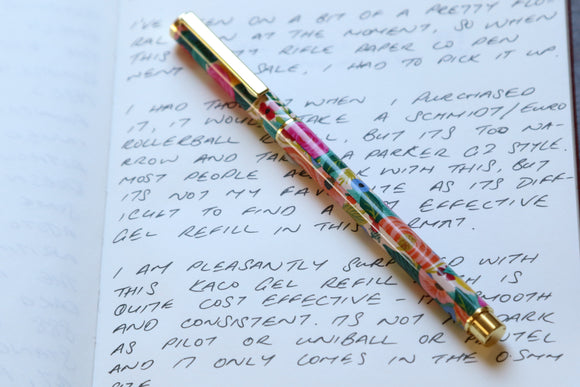 I'VE BEEN ON A BIT OF A PRETTY FLO-
RAL AT THE MOMENT, SO WHEN
THIS RIFLE PAPER CO PEN
WENT SALE, I HAD TO PICK IT UP.
I HAD WHEN I PURCHASED
IT, IT WOULD TAKE A SCHMIDT/EURO
ROLLERBALL BUT ITS TOO NA-
RROW AND A PARKER G2 STYLE.
MOST PEOPLE WITH THIS, BUT
ITS NOT MY FAVOURITE AS ITS DIFF-
ICULT TO FIND A EFFECTIVE
GEL REFILL IN THIS FORMAT.
I AM PLEASANTLY SURPRISED WITH
THIS KACO GEL REFILL WHICH IS
QUITE COST EFFECTIVE - SMOOTH
AND CONSISTENT. ITS NOT DARK
AS PILOT OR UNIBALL OR PENTEL
AND IT ONLY COMES IN THE 0.5MM